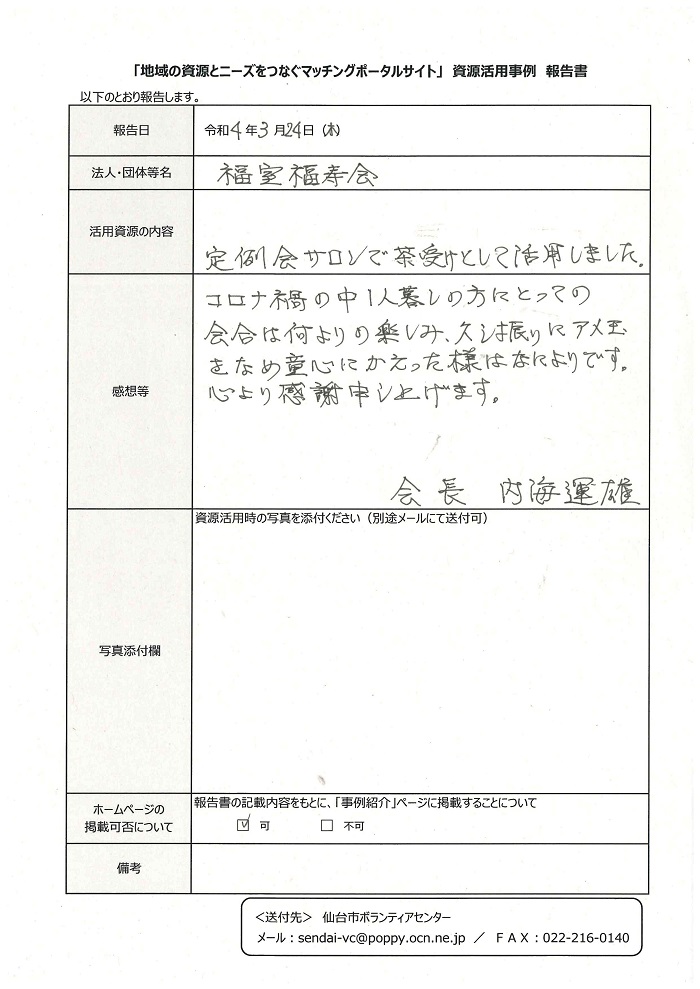 「地域の資源とニーズをつなぐマッチングポータルサイト」 資源活用事例 報告書
以下のとおり報告します。
報告日
令和4年3月24日(木)
法人・団体等名
福室福寿会
活用資源の内容
定例会サロンで茶受けとして活用しました。
感想等
コロナ禍の中1人暮しの方にとっての
会合は何よりの楽しみ、久し振りにアメ玉
をなめ童心にかえった様はなによりです。
心より感謝申し上げます。
会長 内海運雄
写真添付欄
資源活用時の写真を添付ください(別途メールにて送付可)
ホームページの
掲載可否について
報告書の記載内容をもとに、「事例紹介」ページに掲載することについて
☑ 可 ☐ 不可
備考
<送付先> 仙台市ボランティアセンター
メール:sendai-vc@poppy.ocn.ne.jp / FAX:022-216-0140